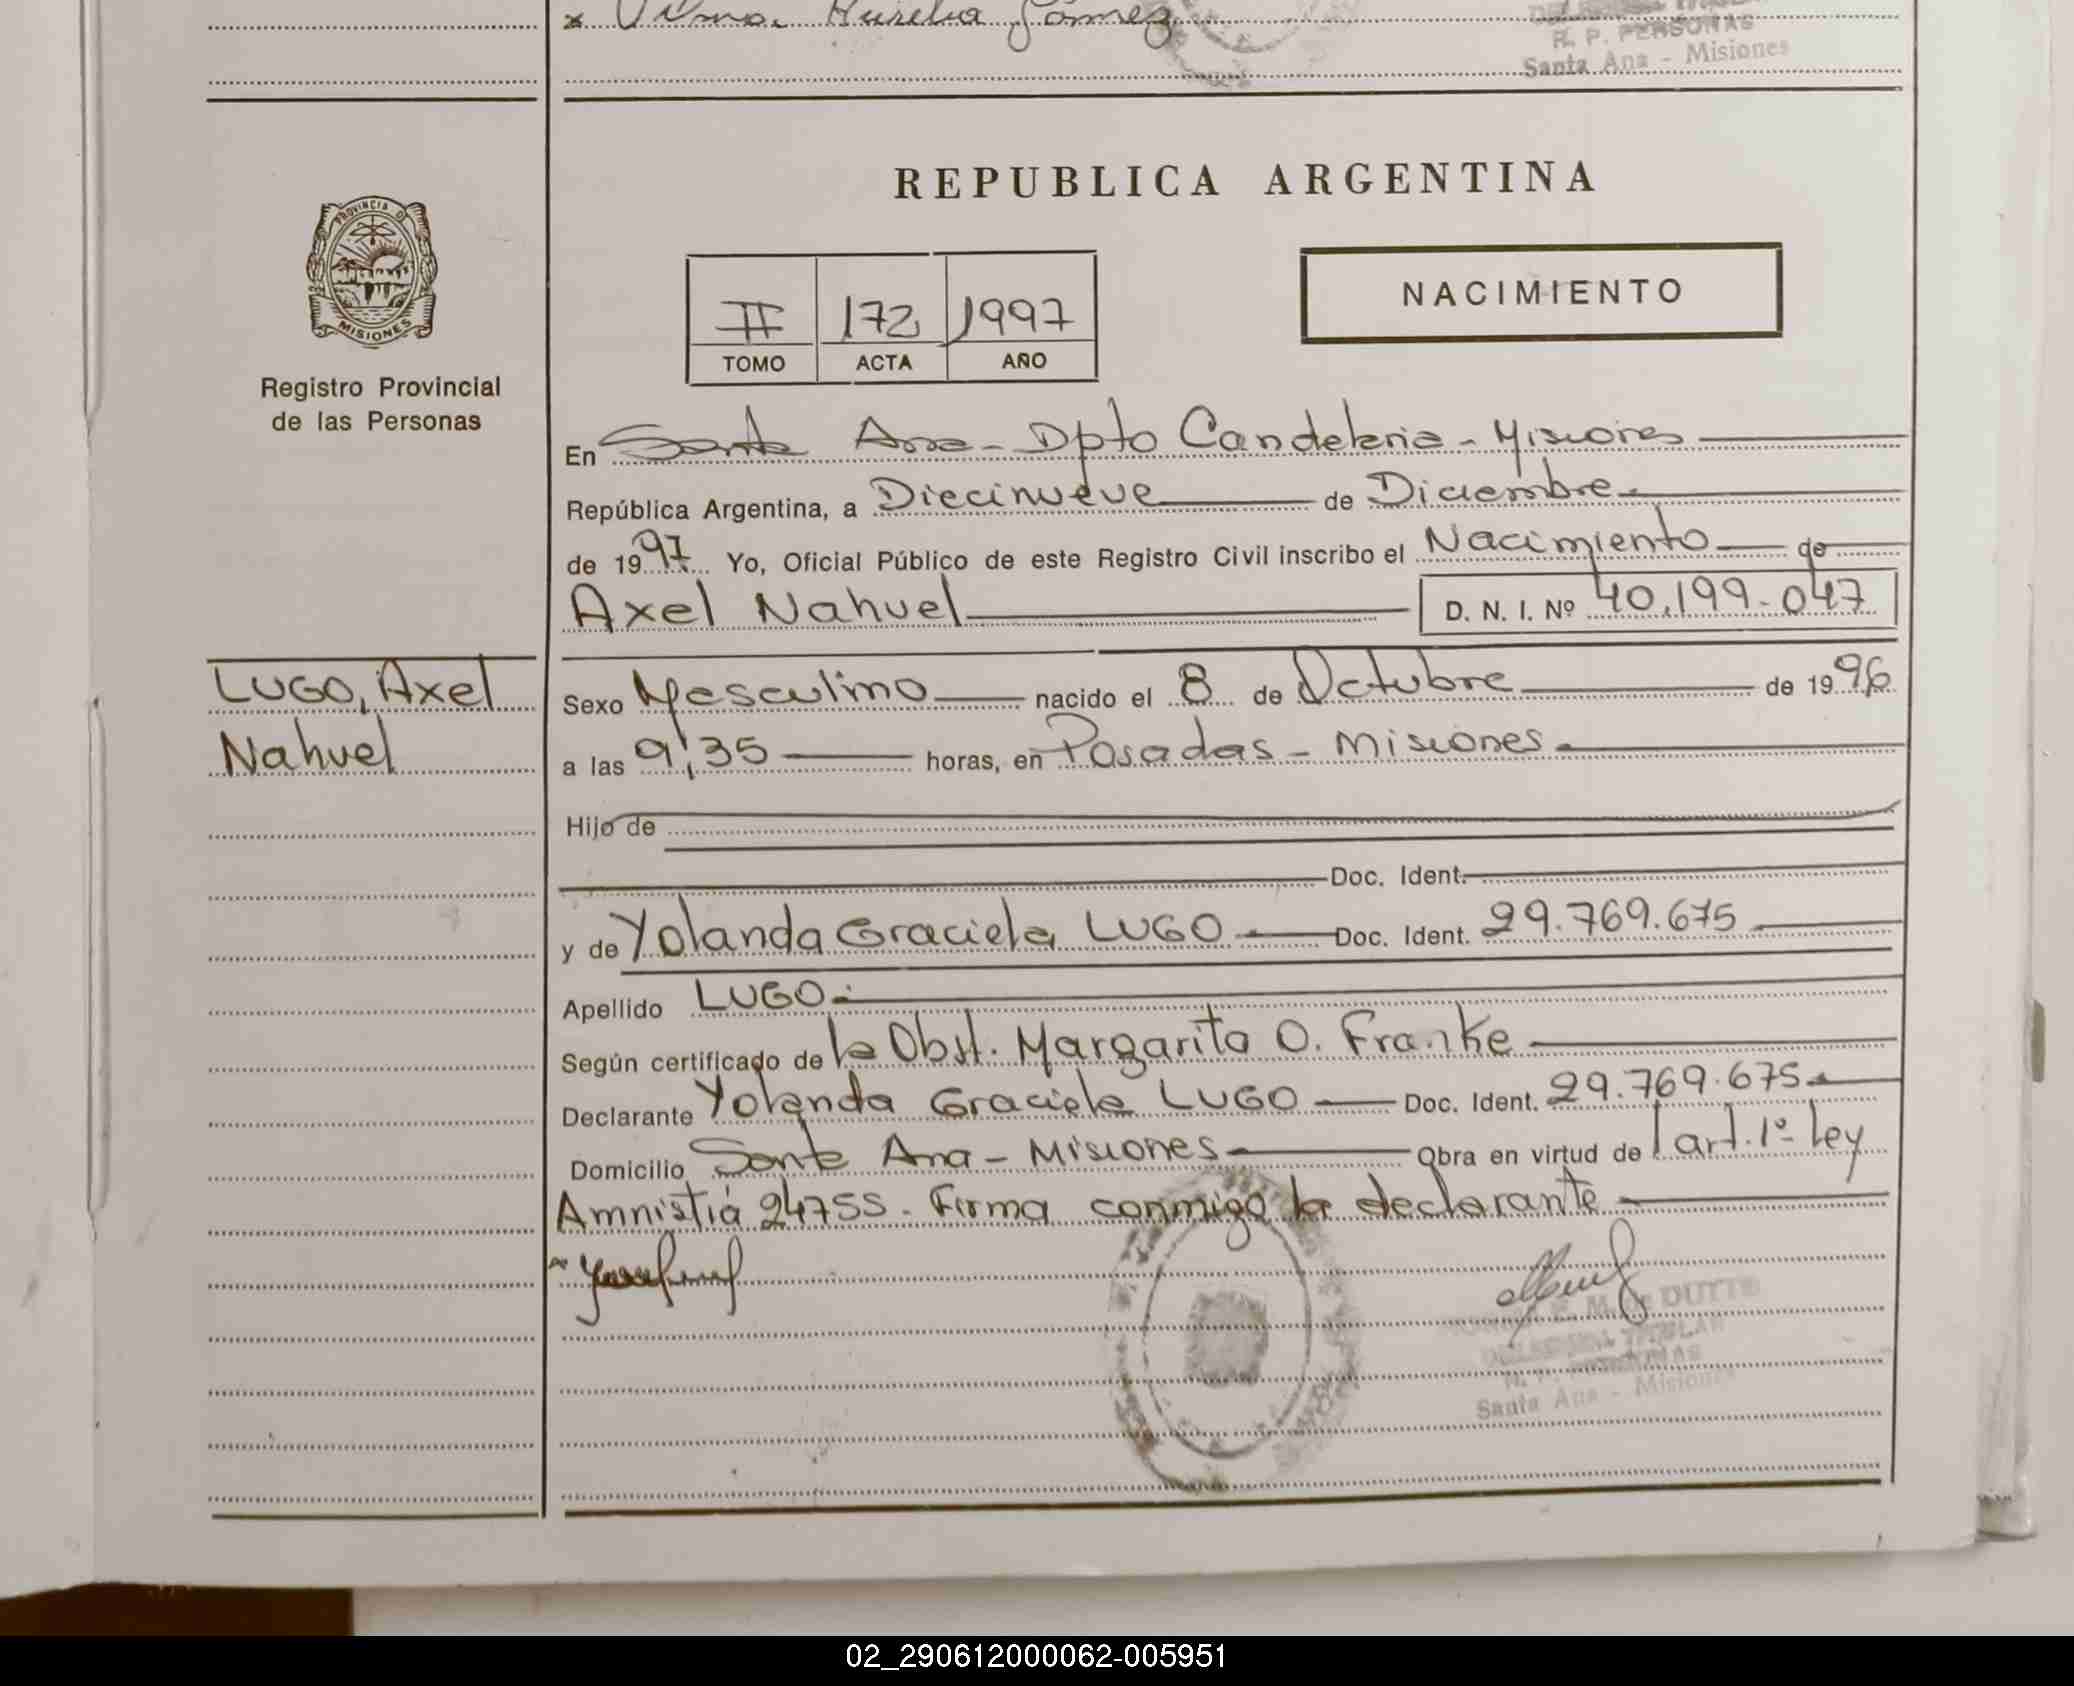 x Vilma Aurelia Gómez
R. P. PERSONAS
Santa Ana - Misiones
REPUBLICA ARGENTINA
PROVINCIA DE
MISIONES
Registro Provincial
de las Personas
II 172 1997
TOMO ACTA AÑO
NACIMIENTO
En Santa Ana - Dpto Candelaria - Misiones
República Argentina, a Diecinueve de Diciembre
de 1997 Yo, Oficial Público de este Registro Civil inscribo el Nacimiento de
Axel Nahuel D. N. I. Nº 40.199.047
LUGO, Axel
Nahuel
Sexo Masculino nacido el 8 de Octubre de 1996
a las 9,35 horas, en Posadas - Misiones
Hijo de
Doc. Ident.
y de Yolanda Graciela LUGO Doc. Ident. 29.769.675
Apellido LUGO
Según certificado de la Obst. Margarita O. Franke
Declarante Yolanda Graciela LUGO Doc. Ident. 29.769.675
Domicilio Santa Ana - Misiones Obra en virtud de l art. 1º ley
Amnistia 24755. Firma conmigo la declarante
M. de DUTTE
Santa Ana - Misiones
02_290612000062-005951